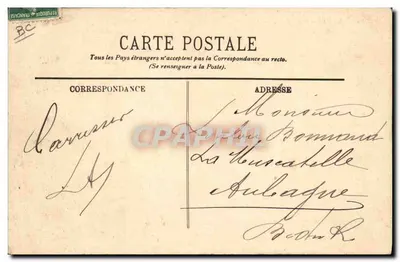 BC
CARTE POSTALE
Tous les Pays étrangers n'acceptent pas la Correspondance au recto.
(Se renseigner à la Poste).
CORRESPONDANCE
ADRESSE
Monsieur
Bonnaud
La Muscatelle
Aubagne
B d R
CPARAMA